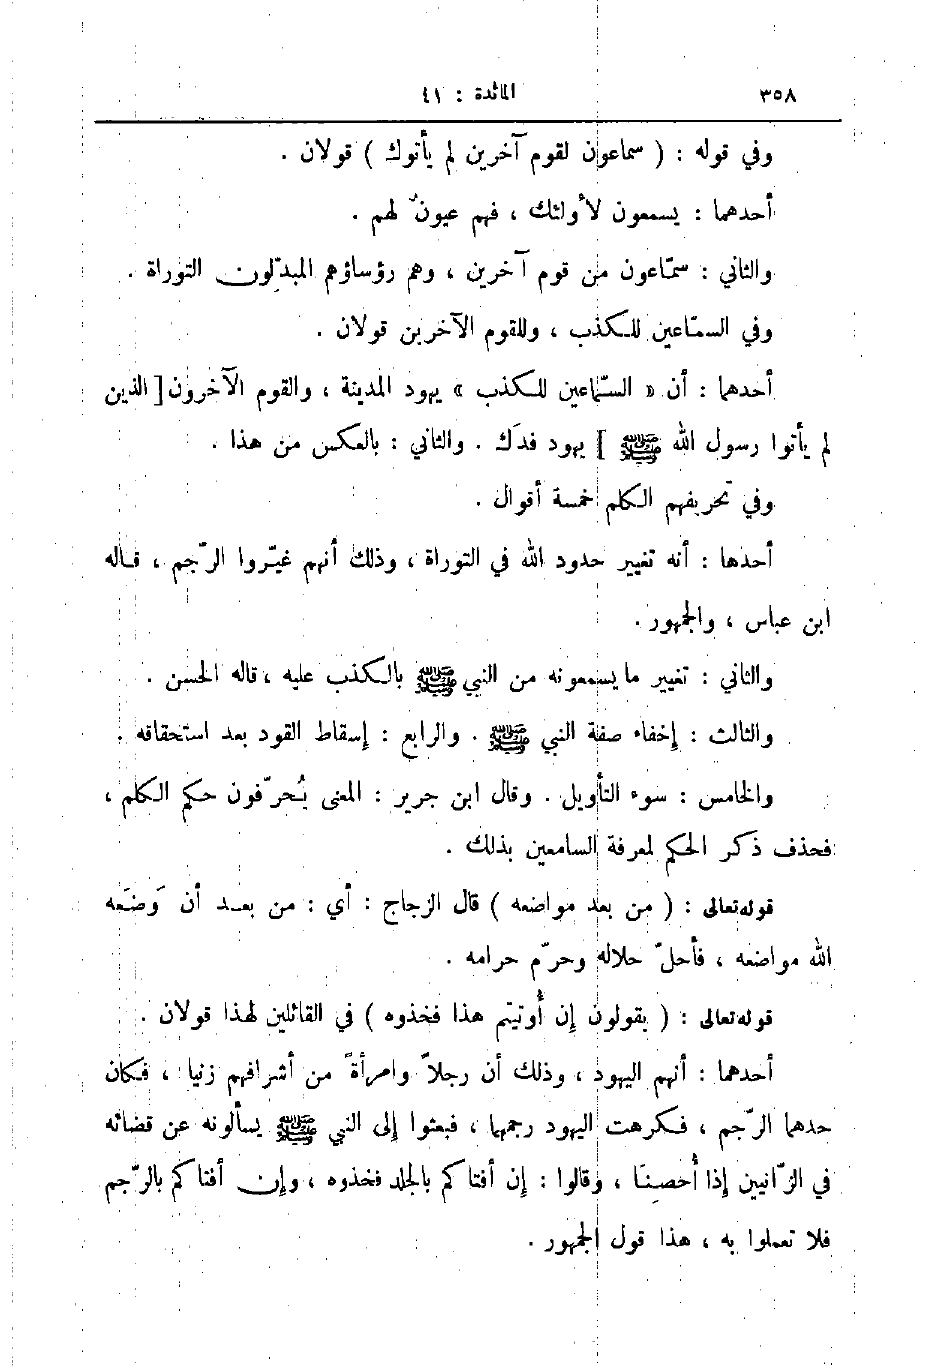 ٣٥٨ المائدة : ٤١
وفي قوله : ( سماعون لقوم آخرين لم يأتوك ) قولان .
أحدهما : يسمعون لأولئك ، فهم عيونٌ لهم .
والثاني : سمّاعون من قوم آخرين ، وهم رؤساؤهم المبدّلون التوراة .
وفي السمّاعين للكذب ، وللقوم الآخرين قولان .
أحدهما : أن « السمّاعين للكذب » يهود المدينة ، والقوم الآخرون [ الذين
لم يأتوا رسول الله ﷺ ] يهود فدَك . والثاني : بالعكس من هذا .
وفي تحريفهم الكلم خمسة أقوال .
أحدها : أنه تغيير حدود الله في التوراة ، وذلك أنهم غيّروا الرّجم ، قاله
ابن عباس ، والجمهور .
والثاني : تغيير ما يسمعونه من النبي ﷺ بالكذب عليه ، قاله الحسن .
والثالث : إخفاء صفة النبي ﷺ . والرابع : إسقاط القود بعد استحقاقه .
والخامس : سوء التأويل . وقال ابن جرير : المعنى يُحرّفون حكم الكلم ،
فحذف ذكر الحكم لمعرفة السامعين بذلك .
قوله تعالى : ( من بعد مواضعه ) قال الزجاج : أي : من بعد أن وَضَعه
الله مواضعه ، فأحلّ حلاله وحرّم حرامه .
قوله تعالى : ( يقولون إن أُوتيتم هذا فخذوه ) في القائلين لهذا قولان .
أحدهما : أنهم اليهود ، وذلك أن رجلاً وامرأةً من أشرافهم زنيا ، فكان
حدهما الرّجم ، فكرهت اليهود رجمها ، فبعثوا إلى النبي ﷺ يسألونه عن قضائه
في الزّانيين إذا أُحصِنَا ، وقالوا : إن أفتاكم بالجلد فخذوه ، وإن أفتاكم بالرّجم
فلا تعملوا به ، هذا قول الجمهور .